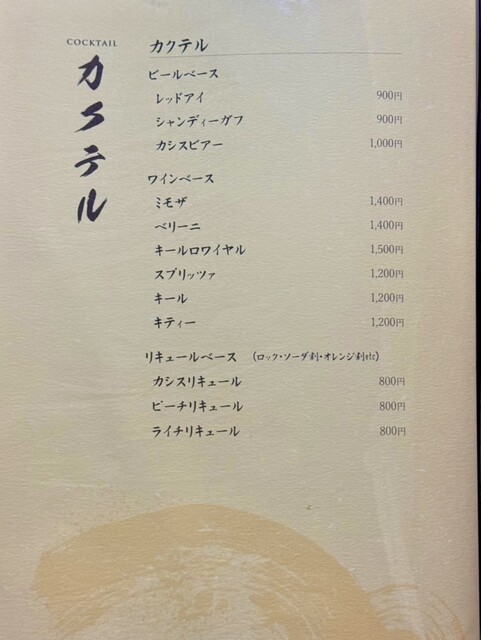 COCKTAIL
カクテル
カクテル
ビールベース
レッドアイ 900円
シャンディーガフ 900円
カシスビアー 1,000円
ワインベース
ミモザ 1,400円
ベリーニ 1,400円
キールロワイヤル 1,500円
スプリッツァ 1,200円
キール 1,200円
キティー 1,200円
リキュールベース (ロック・ソーダ割・オレンジ割etc)
カシスリキュール 800円
ピーチリキュール 800円
ライチリキュール 800円